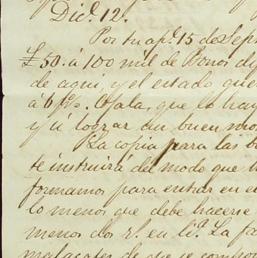 Dic.e 12.
Por tu ap.e 15 de Sep
£50. á 100 mil de Bonos di
de aqui, y el estado que
á 6 p%. Ojala, que lo hay
y á lograr un buen mo
La copia para las b
te instruirá del modo que
formamos para entrar en e
lo menos que debe hacerse
menos dos r.s en li.a La fa
malacates de que se compon